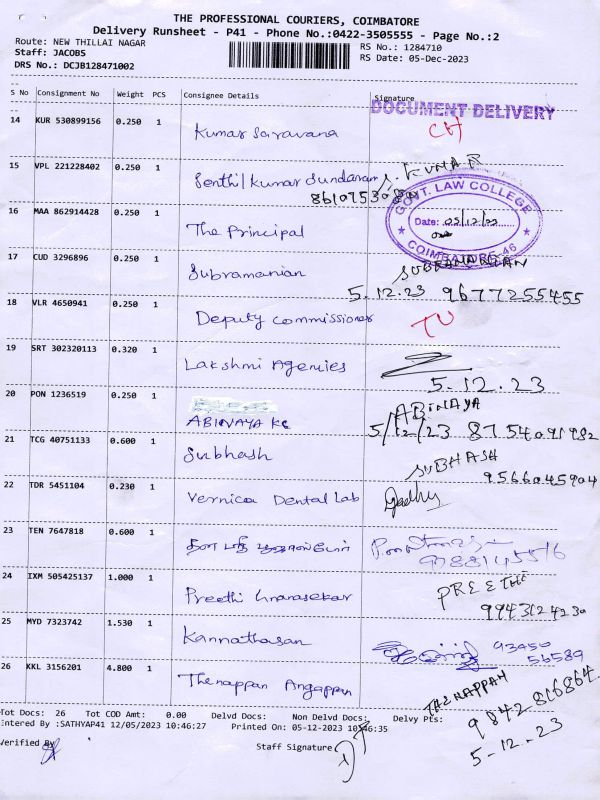 THE PROFESSIONAL COURIERS, COIMBATORE
Delivery Runsheet - P41 - Phone No.:0422-3505555 - Page No.:2
Route: NEW THILLAI NAGAR
RS No.: 1284710
Staff: JACOBS
RS Date: 05-Dec-2023
DRS No.: DCJB128471002
S No Consignment No Weight PCS Consignee Details Signature
DOCUMENT DELIVERY
14 KUR 530899156 0.250 1 Kumar Saravana CH
15 VPL 221228402 0.250 1 Senthil Kumar Sundaram S. KUMAR
GOVT. LAW COLLEGE
Date: 05/12/23
COIMBATORE-46
16 MAA 862914428 0.250 1 The Principal
17 CUD 3296896 0.250 1 Subramanian SUBRAMANIAN
5.12.23 9677255455
18 VLR 4650941 0.250 1 Deputy Commissioner
19 SRT 302320113 0.320 1 Lakshmi Agencies
5.12.23
20 PON 1236519 0.250 1 ABINAYA KC ABINAYA
5/12/23 8754091982
21 TCG 40751133 0.600 1 Subhash SUBHASH
9566045904
22 TDR 5451104 0.230 1 Vernica Dental Lab
23 TEN 7647818 0.600 1
24 IXM 505425137 1.000 1 Preethi PREETHI
9943124230
25 MYD 7323742 1.530 1 Kannathasan 93450
56589
26 KKL 3156201 4.800 1 Thenappan Angappan THENAPPAN
9842816864
5-12.23
Tot Docs: 26 Tot COD Amt: 0.00 Delvd Docs: Non Delvd Docs: Delvy Pts:
Entered By :SATHYAP41 12/05/2023 10:46:27 Printed On: 05-12-2023 10:46:35
Verified By
Staff Signature